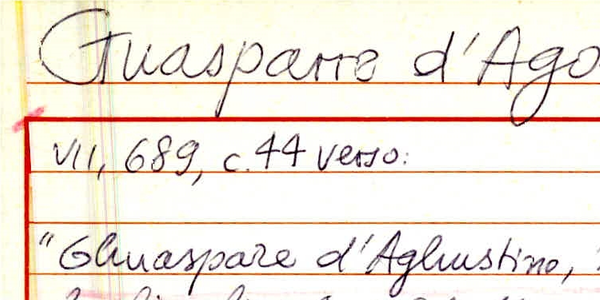 Guasparre d'Ago
VII, 689, c. 44 verso:
"Ghuaspare d'Aghustino,